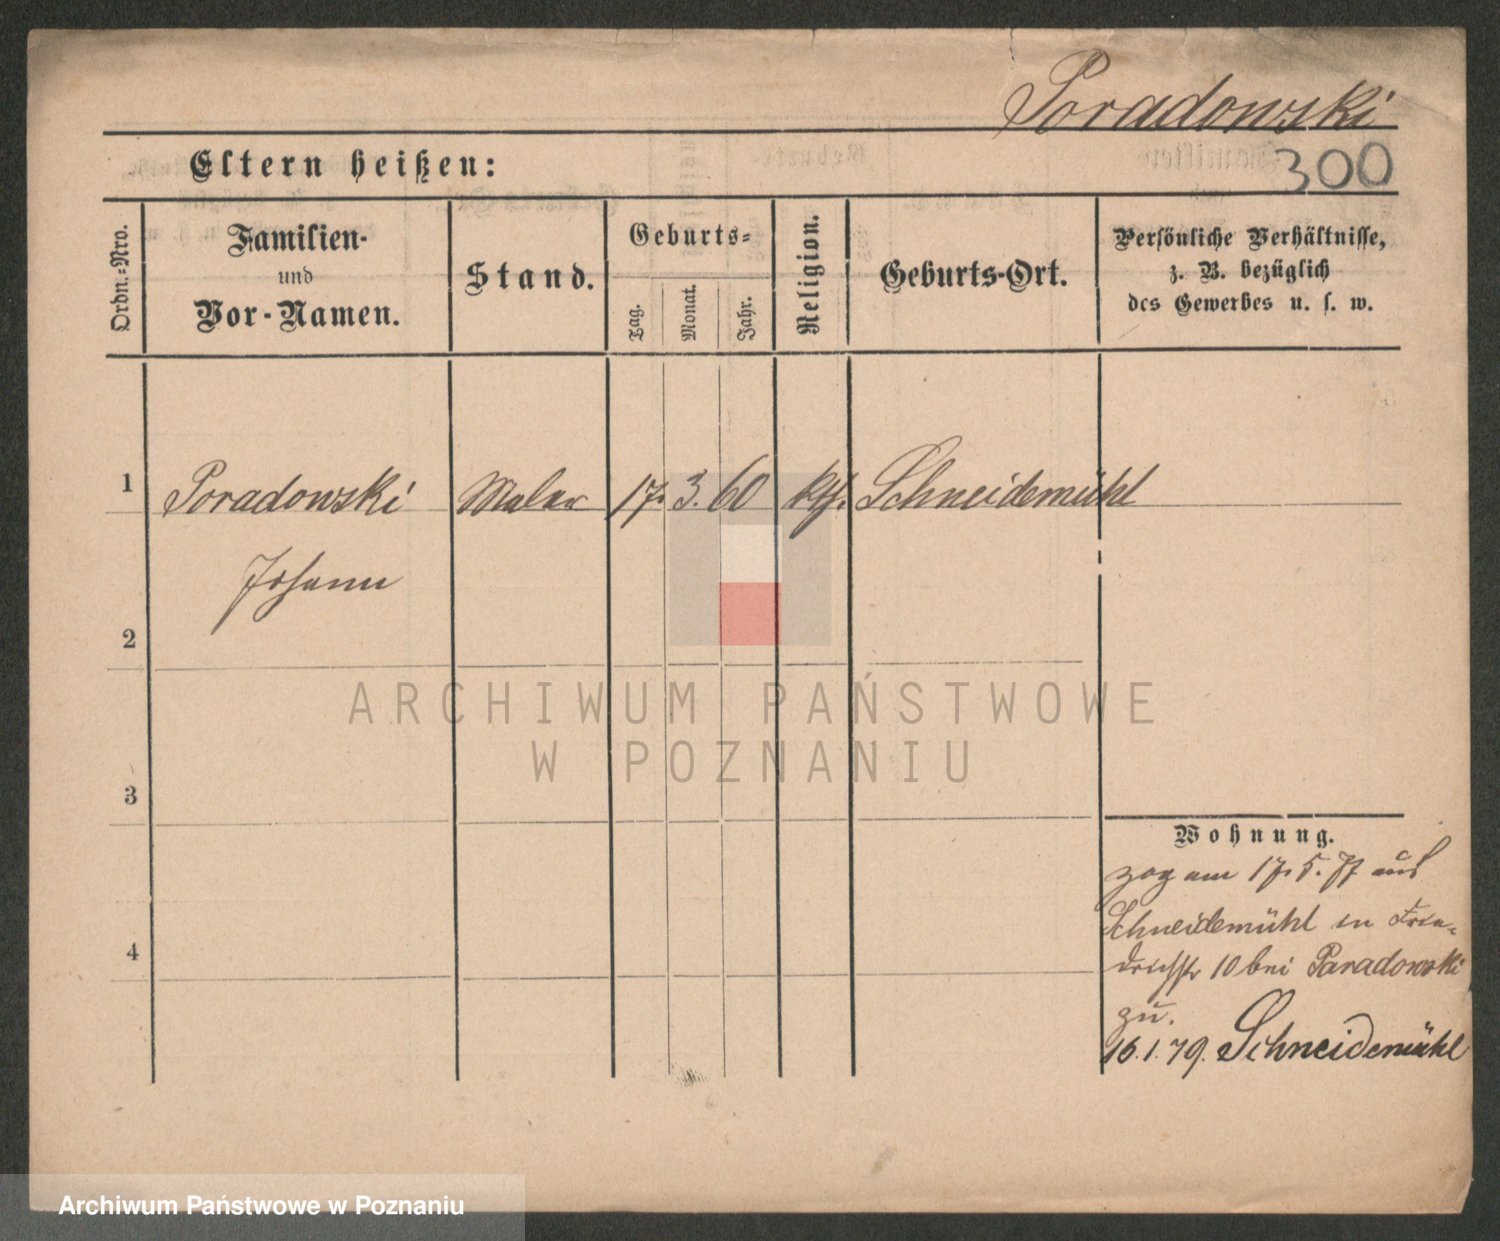 Poradowski
Eltern heißen:
300
Ordn.=Nro.
Familien-
und
Vor-Namen.
Stand.
Geburts=
Tag.
Monat.
Jahr.
Religion.
Geburts-Ort.
Persönliche Verhältnisse,
z. B. bezüglich
des Gewerbes u. s. w.
1 Poradowski Maler 17. 3. 60 kth. Schneidemühl
Johann
2
ARCHIWUM PAŃSTWOWE
W POZNANIU
3
Wohnung.
zog am 17. 5. 77 aus
Schneidemühl in Frie-
drichstr 10 bei Paradowski
4
zu.
16. 1. 79. Schneidemühl
Archiwum Państwowe w Poznaniu